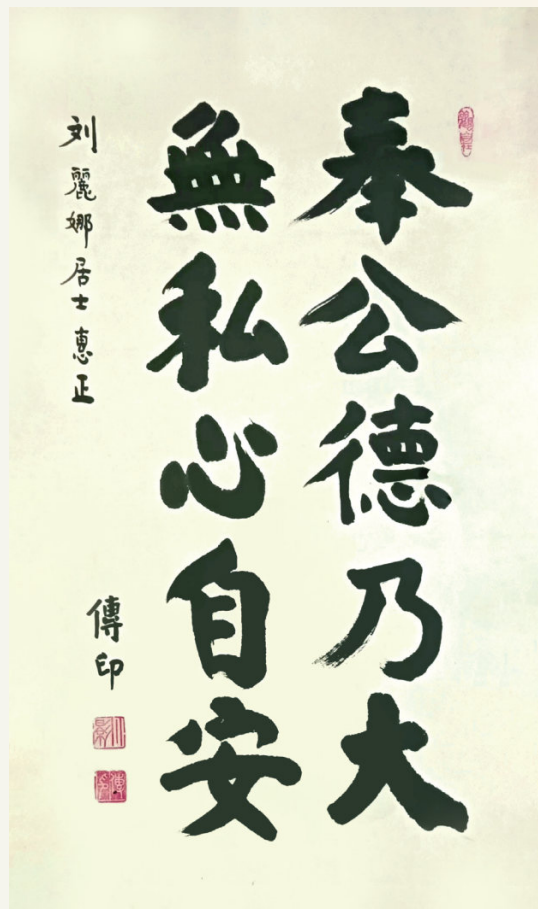 奉公德乃大
無私心自安
刘麗娜居士惠正
傳印